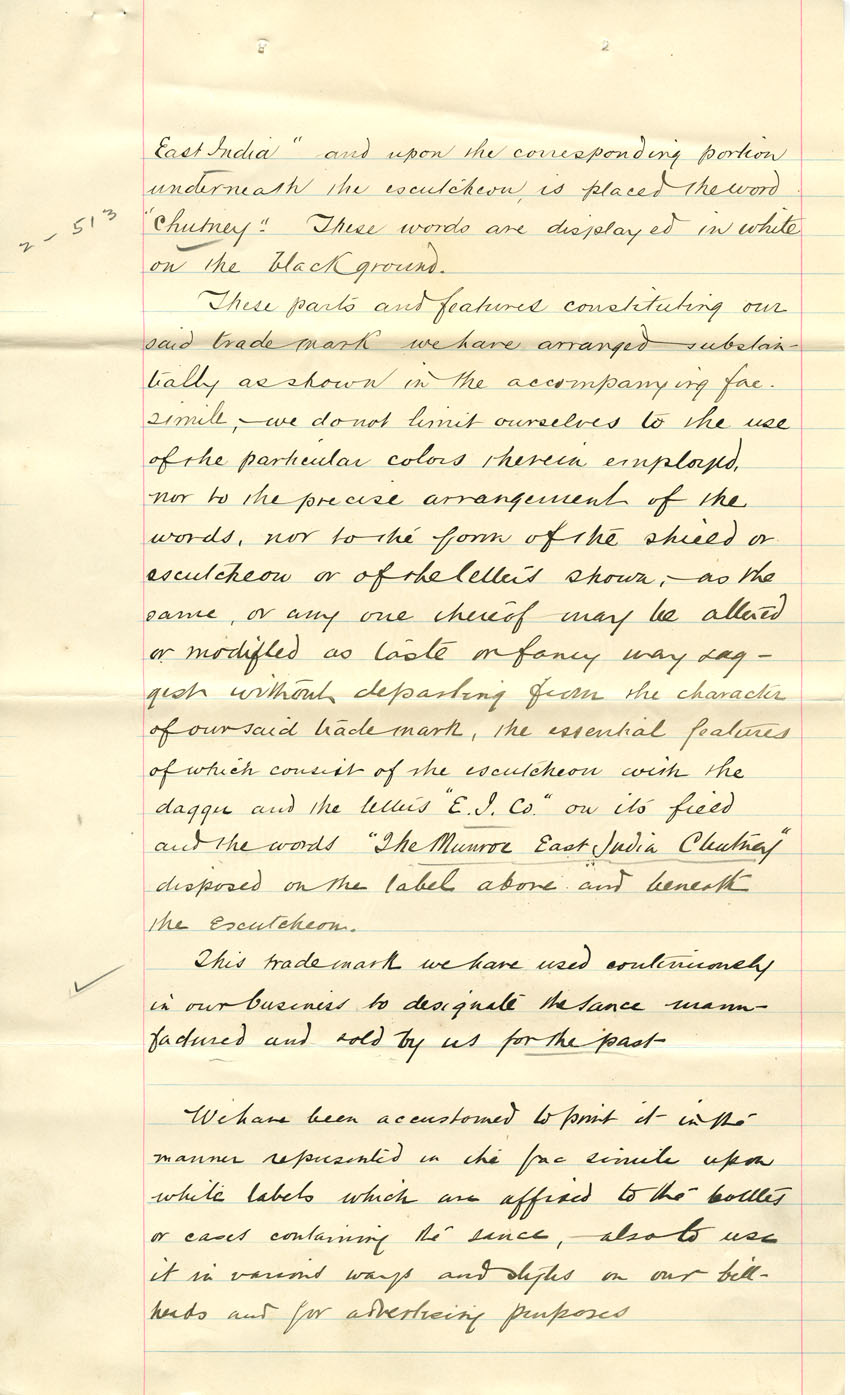 East India" and upon the corresponding portion
underneath the escutcheon, is placed the word
2 - 513
"Chutney". These words are displayed in white
on the black ground.
These parts and features constituting our
said trade mark we have arranged substan-
tially as shown in the accompanying fac-
simile, - we do not limit ourselves to the use
of the particular colors therein employed,
nor to the precise arrangement of the
words, nor to the form of the shield or
escutcheon or of the letters shown, - as the
same, or any one thereof may be altered
or modified as taste or fancy may sug-
gest without departing from the character
of our said trade mark, the essential features
of which consist of the escutcheon with the
dagger and the letters "E. I. Co." on its field
and the words "The Munroe East India Chutney"
disposed on the label above and beneath
the escutcheon.
This trade mark we have used continuously
in our business to designate the sauce manu-
factured and sold by us for the past
We have been accustomed to print it in the
manner represented in the fac simile upon
white labels which are affixed to the bottles
or cases containing the sauce, - also to use
it in various ways and styles on our bill-
heads and for advertising purposes